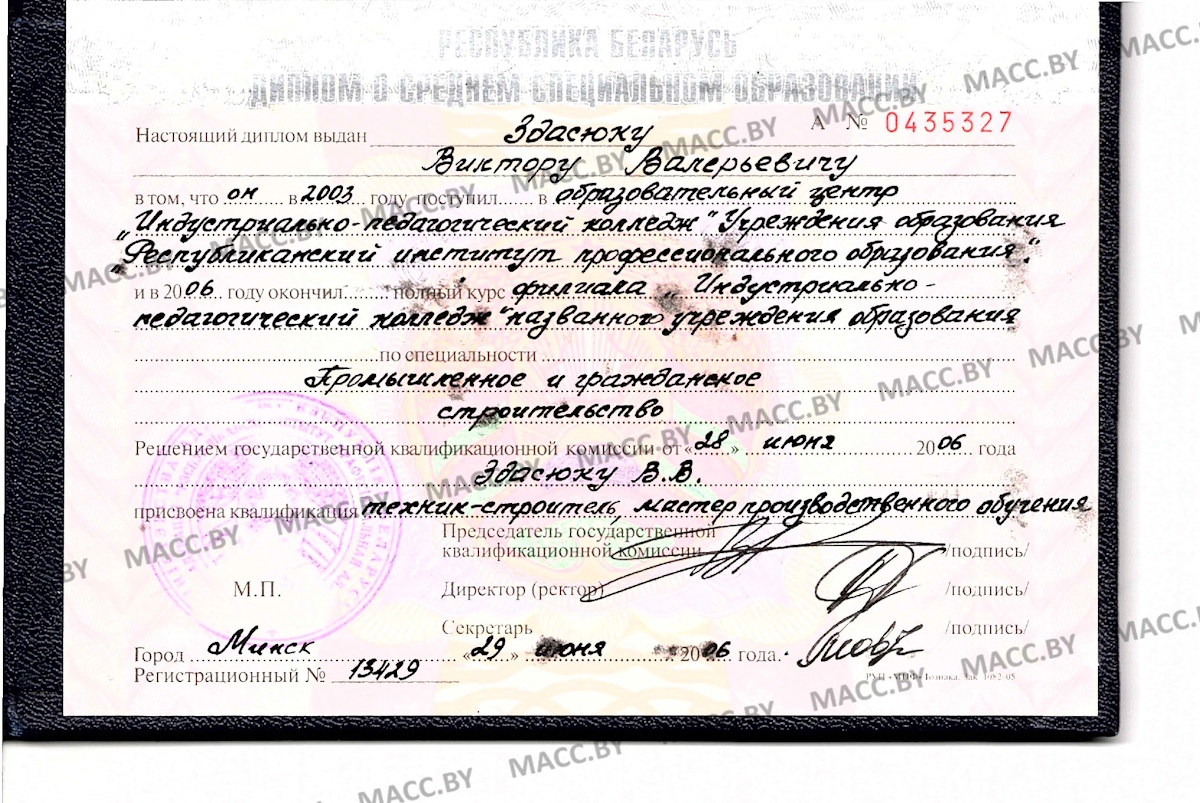 РЕСПУБЛИКА БЕЛАРУСЬ
ДИПЛОМ О СРЕДНЕМ СПЕЦИАЛЬНОМ ОБРАЗОВАНИИ
А № 0435327
Настоящий диплом выдан Здасюку
Виктору Валерьевичу
в том, что он в 2003 году поступил в образовательный центр
"Индустриально-педагогический колледж" Учреждения образования
"Республиканский институт профессионального образования".
и в 2006 году окончил полный курс филиала "Индустриально-
педагогический колледж" названного учреждения образования
по специальности
Промышленное и гражданское
строительство
Решением государственной квалификационной комиссии от «28» июня 2006 года
Здасюку В.В.
присвоена квалификация техник-строитель, мастер производственного обучения
Председатель государственной
квалификационной комиссии /подпись/
М.П. Директор (ректор) /подпись/
Секретарь /подпись/
Город Минск «29» июня 2006 года.
Регистрационный № 13429
MACC.BY